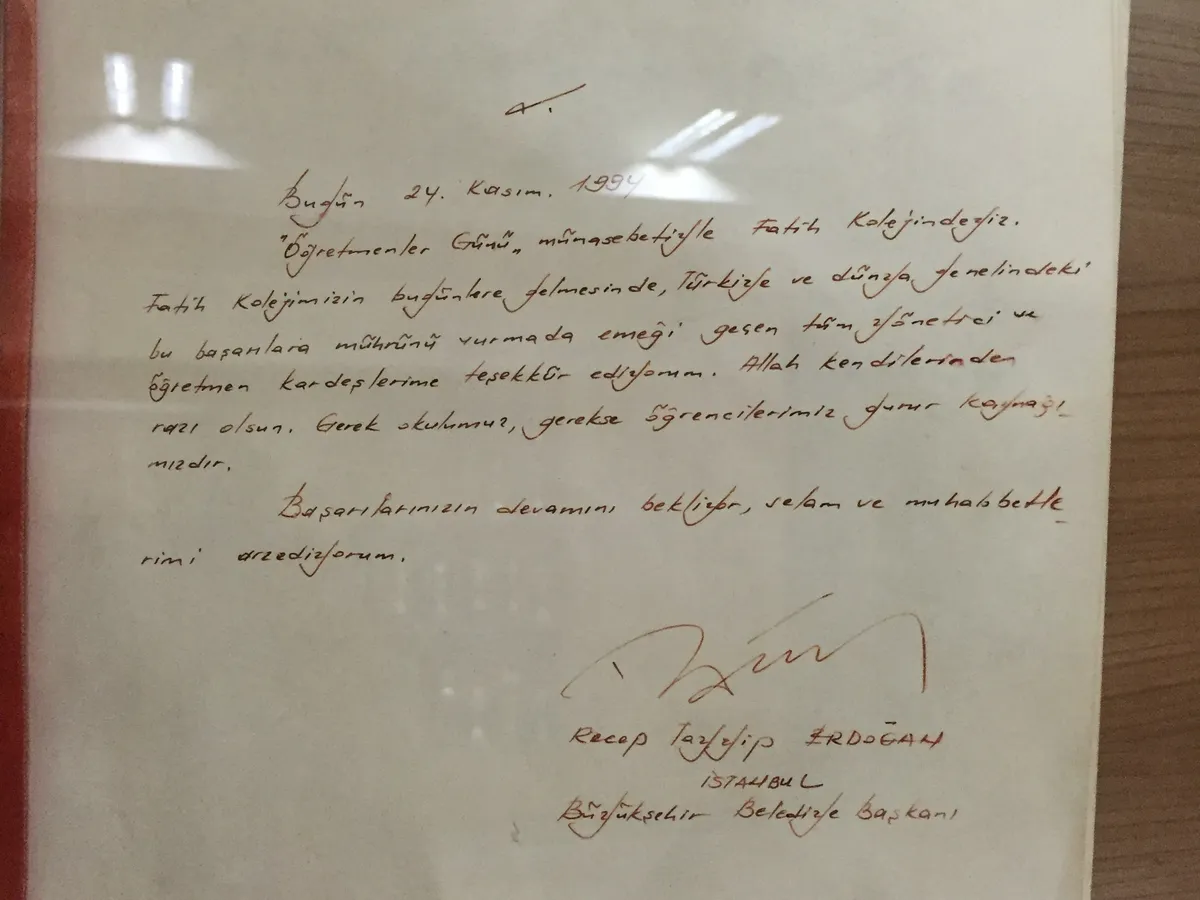 Bugün 24. Kasım. 1994
"Öğretmenler Günü" münasebetiyle Fatih Kolejindeyiz.
Fatih Kolejimizin bugünlere gelmesinde, Türkiye ve dünya genelindeki
bu başarılara mührünü vurmada emeği geçen tüm yönetici ve
öğretmen kardeşlerime teşekkür ediyorum. Allah kendilerinden
razı olsun. Gerek okulumuz, gerekse öğrencilerimiz gurur kaynağı-
mızdır.
Başarılarınızın devamını bekliyor, selam ve muhabbetle-
rimi arzediyorum.
Recep Tayyip ERDOĞAN
İSTANBUL
Büyükşehir Belediye Başkanı